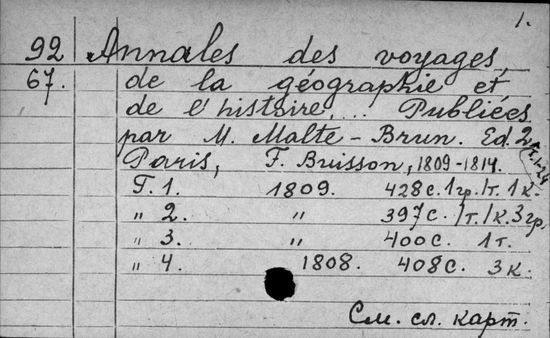 1.
92 Annales des voyages,
67. de la géographie et
de l'histoire,... Publiées
par M. Malte-Brun. Ed. 2
Paris, F. Buisson, 1809-1814.
Т.1-24
Т. 1. 1809. 428 с. 1 гр. 1 т. 1 к.
" 2. " 397 с. 1 т. 1 к. 3 гр.
" 3. " 400 с. 1 т.
" 4. 1808. 408 с. 3 к.
См. сл. карт.